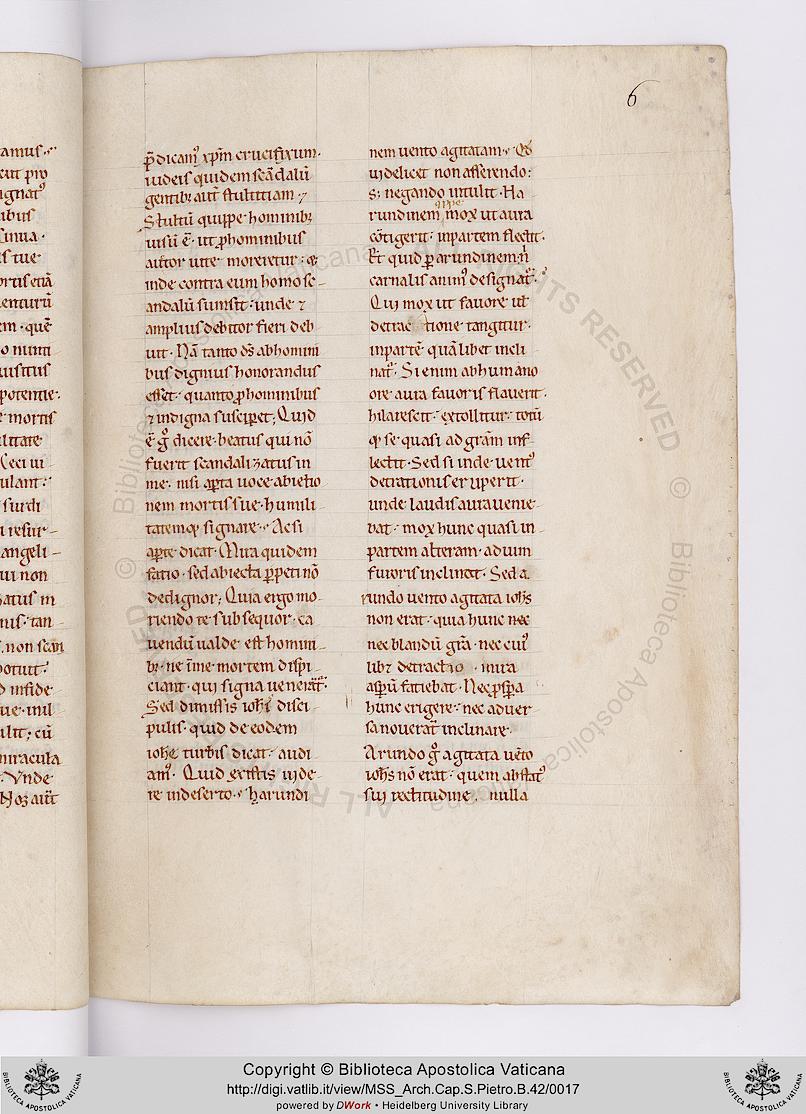 6
amus.
ignat᷒
ibus
sinua.
is tue
entur̄u
em . quē
o nunti
potentie.
e mortis
ilitate
Ceci ui
ulant.
surdi
i resur-
angeli-
ui non
zatus in
nus. tan-
. non scan
potuit.
d infide-
ulit; cū
miracula
. Vnde
p̄dicam᷒ xp̄m crucifixum.
iudeis quidem scādalū
gentib; aut̄ stultitiam. ⁊
Stultū quippe hominib;
uisū ē. ut ꝓ hominibus
auctor uite moreretur. &
inde contra eum homo sc-
andalū sumsit. unde ⁊
amplius debitor fieri deb-
uit. Nā tanto d̄s ab homini
bus dignius honorandus
esset. quanto ꝓ hominibus
⁊ indigna susciperet; Quid
ē g̊ dicere. beatus qui nō
fuerit scandalizatus in
me. nisi aꝑta uoce abiectio
nem mortis sue. humili-
tatemq; signare. Ac si
aꝑte dicat. Mira quidem
facio. sed abiecta ꝑpeti nō
dedignor; Quia ergo mo-
riendo te subsequor. ca
uendū ualde est homini
b;. ne ī me mortem dispi-
ciant. qui signa uenerāt᷒.
Sed dimissis ioh̄is disci-
pulis. quid de eodem
ioh̄e turbis dicat. audi
am᷒. Quid existis uide-
re in deserto. harundi
nem uento agitatam. Qd̄
uidelicet non asserendo.
s; negando intulit. Ha
rundinem qippe mox ut aura
cōtigerit. in partem flectit.
Et quid ꝑ arundinem. n̄
carnalis anim᷒ designat᷒.
Qui mox ut fauore ul̄
detractione tangitur.
in partē quālibet incli
nat᷒. Si enim ab humano
ore aura fauoris flauerit.
hilarescit. extollitur. totū
q; se quasi ad gr̄am inf-
lectit. Sed si inde uent᷒
detractionis eruperit.
unde laudis aura uenie-
bat. mox hunc quasi in
partem alteram. ad uim
furoris inclinet. Sed a
rundo uento agitata ioh̄s
non erat. quia hunc nec
nec blandū gr̄a. nec cui᷒
lib; detractio. iraa
asꝑū faciebat. Nec ꝓspa
hunc erigere. nec aduer
sa nouerat inclinare.
Arundo g̊ agitata uēto
ioh̄s nō erat. quem a stat᷒
sui rectitudine. nulla
Copyright © Biblioteca Apostolica Vaticana
http://digi.vatlib.it/view/MSS_Arch.Cap.S.Pietro.B.42/0017
powered by DWork • Heidelberg University Library
BIBLIOTECA APOSTOLICA VATICANA
BIBLIOTECA APOSTOLICA VATICANA
© Biblioteca Apostolica Vaticana ALL RIGHTS RESERVED